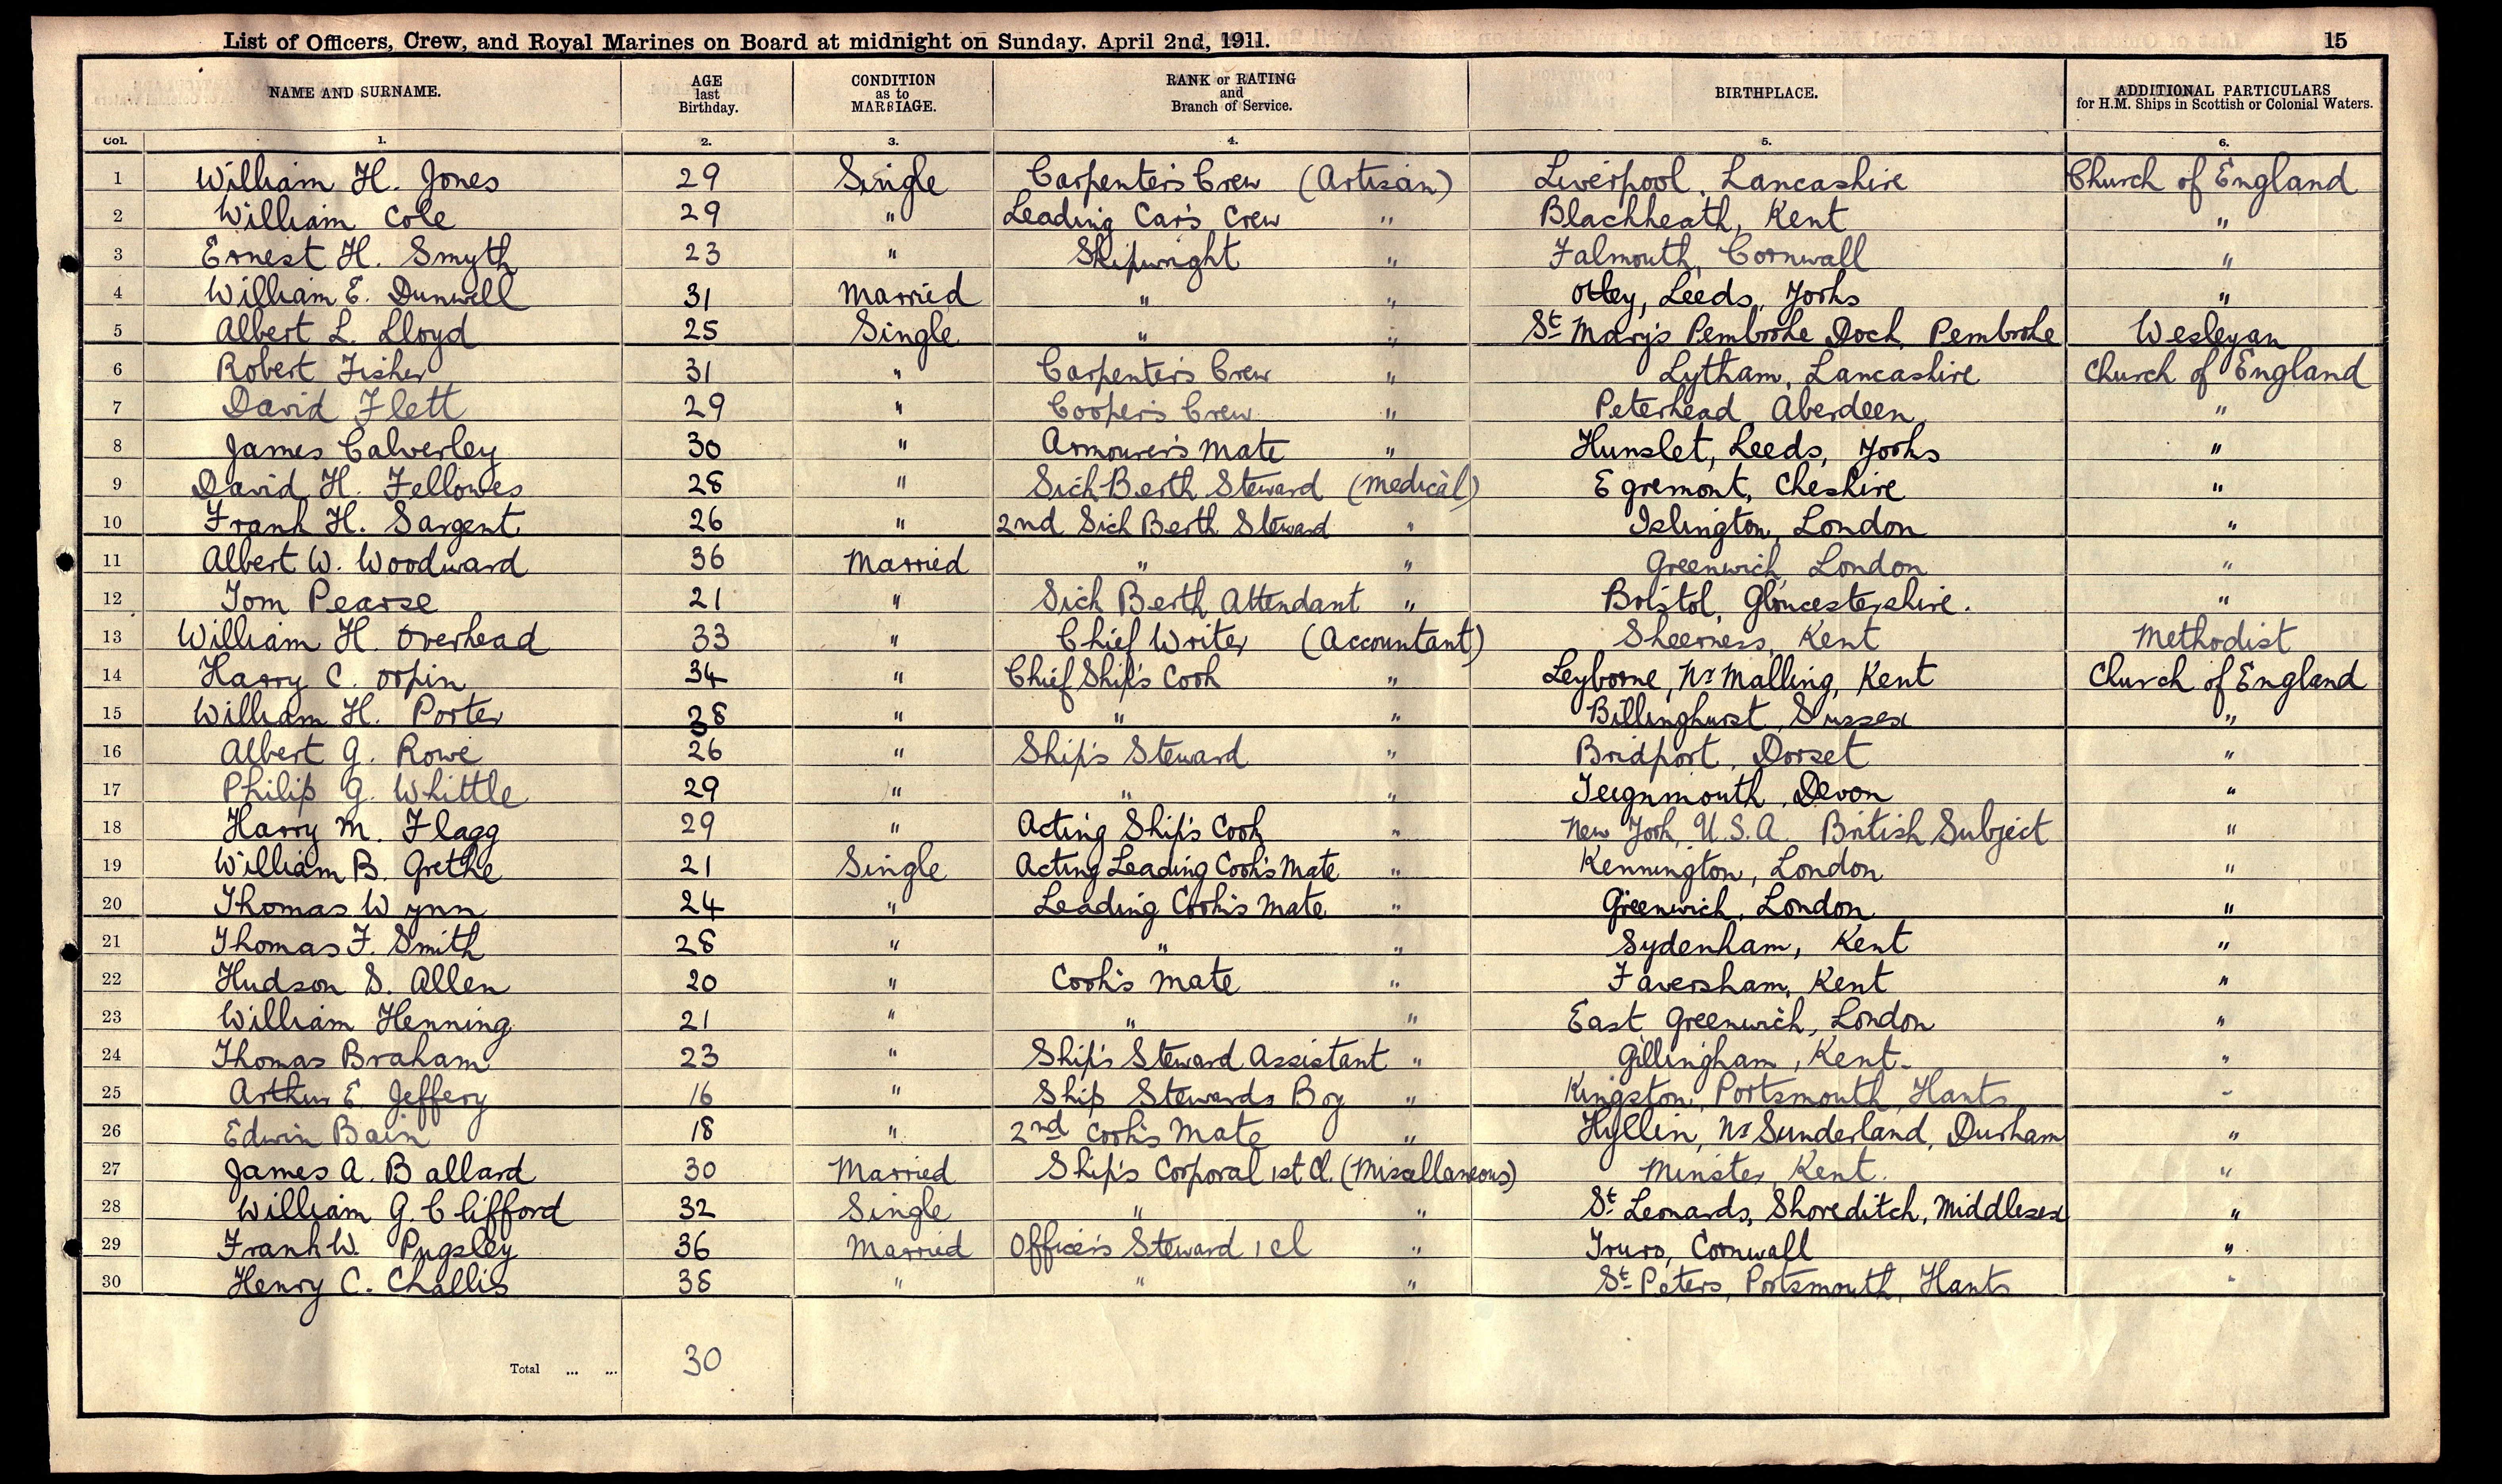 List of Officers, Crew, and Royal Marines on Board at midnight on Sunday. April 2nd, 1911. 15
NAME AND SURNAME. AGE last Birthday. CONDITION as to MARRIAGE. RANK or RATING and Branch of Service. BIRTHPLACE. ADDITIONAL PARTICULARS for H.M. Ships in Scottish or Colonial Waters.
Col. 1. 2. 3. 4. 5. 6.
1 William H. Jones 29 Single Carpenter's Crew (Artisan) Liverpool, Lancashire Church of England
2 William Cole 29 " Leading Car's Crew " Blackheath, Kent "
3 Ernest H. Smyth 23 " Shipwright " Falmouth, Cornwall "
4 William E. Dunwell 31 Married " " Otley, Leeds, Yorks "
5 Albert L. Lloyd 25 Single " " St Mary's Pembroke Dock, Pembroke Wesleyan
6 Robert Fisher 31 " Carpenter's Crew " Lytham, Lancashire Church of England
7 David Flett 29 " Cooper's Crew " Peterhead Aberdeen "
8 James Calverley 30 " Armourer's Mate " Hunslet, Leeds, Yorks "
9 David H. Fellowes 28 " Sick Berth Steward (Medical) Egremont, Cheshire "
10 Frank H. Sargent 26 " 2nd Sick Berth Steward " Islington, London "
11 Albert W. Woodward 36 Married " " Greenwich London "
12 Tom Pearse 21 " Sick Berth Attendant " Bristol, Gloucestershire. "
13 William H. Overhead 33 " Chief Writer (Accountant) Sheerness, Kent Methodist
14 Harry C. Orpin 34 " Chief Ship's Cook " Leyborne, Nr Malling, Kent Church of England
15 William H. Porter 38 " " " Billinghurst, Sussex "
16 Albert G. Rowe 26 " Ship's Steward " Bridport, Dorset "
17 Philip G. Whittle 29 " " " Teignmouth, Devon "
18 Harry M. Flagg 29 " Acting Ship's Cook " New York, U.S.A. British Subject "
19 William B. Grethe 21 Single Acting Leading Cook's Mate " Kennington, London "
20 Thomas Wynn 24 " Leading Cook's Mate " Greenwich, London "
21 Thomas F. Smith 28 " " " Sydenham, Kent "
22 Hudson S. Allen 20 " Cook's Mate " Faversham, Kent "
23 William Henning 21 " " " East Greenwich, London "
24 Thomas Braham 23 " Ship's Steward Assistant " Gillingham, Kent. "
25 Arthur E. Jeffery 16 " Ship Stewards Boy " Kingston, Portsmouth, Hants "
26 Edwin Bain 18 " 2nd Cook's Mate " Hyllin, Nr Sunderland, Durham "
27 James A. Ballard 30 Married Ship's Corporal 1st Cl. (Miscellaneous) Minster, Kent. "
28 William G. Clifford 32 Single " " St Leonards, Shoreditch, Middlesex "
29 Frank W. Pugsley 36 Married Officer's Steward 1 cl " Truro, Cornwall "
30 Henry C. Challis 38 " " " St Peters, Portsmouth, Hants "
Total ... ... 30